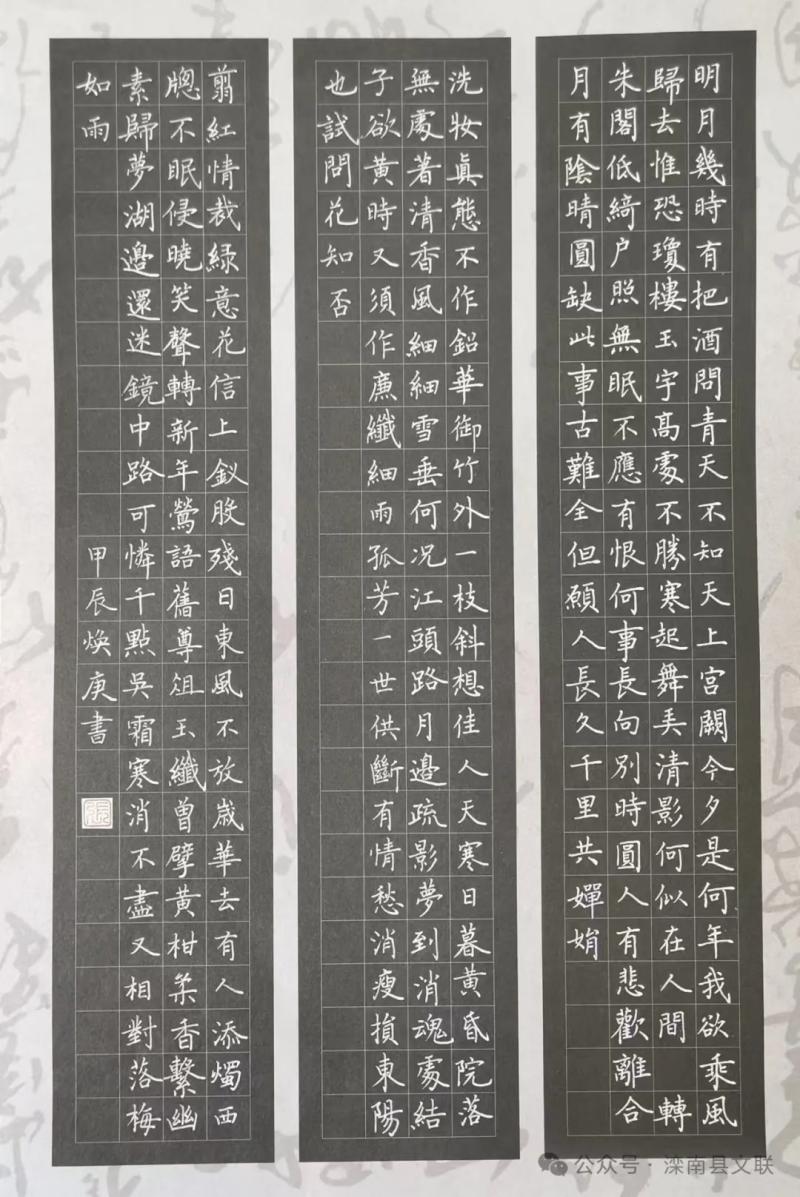 明月幾時有把酒問青天不知天上宮闕今夕是何年我欲乘風
歸去惟恐瓊樓玉宇高處不勝寒起舞弄清影何似在人間 轉
朱閣低綺户照無眠不應有恨何事長向別時圓人有悲歡離合
月有陰晴圓缺此事古難全但願人長久千里共嬋娟
洗妝眞態不作鉛華御竹外一枝斜想佳人天寒日暮黃昏院落
無處著清香風細細雪垂何况江頭路月邊疏影夢到消魂處結
子欲黃時又須作廉纖細雨孤芳一世供斷有情愁消瘦損東陽
也試問花知否
翦紅情裁綠意花信上釵股殘日東風不放歲華去有人添燭西
牕不眠侵曉笑聲轉新年鶯語舊尊俎玉纖曾擘黃柑柔香繫幽
素歸夢湖邊還迷鏡中路可憐千點吳霜寒消不盡又相對落梅
如雨 甲辰焕庚書
公众号·滦南县文联